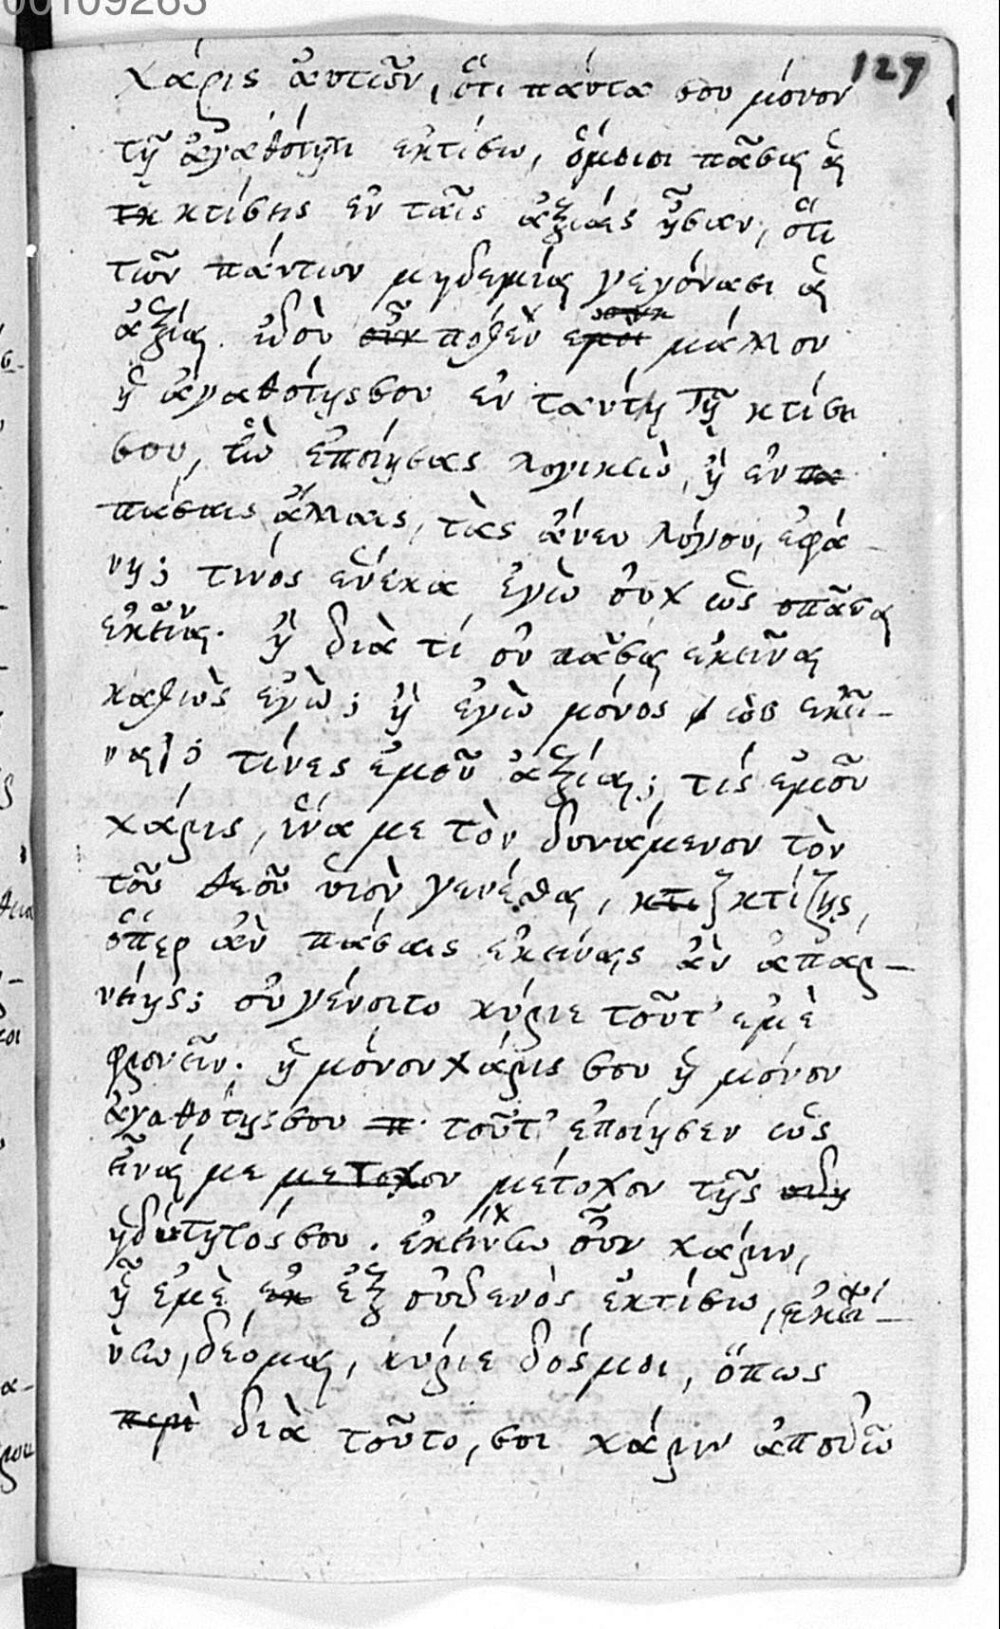 00109263
127
χάρις ἀυτῶν, ὅτι πάντα σου μόνον
τῇ ἀγαθότητι ἐκτίσω, ὅμοιοι πᾶσαι αἱ
τη κτίσεις ἐν ταῖς ἀξίαις ἦσαν, ὅτι
τῶν πάντων μηδεμίας γεγόνασι αἱ
ἀξίαι. ἰδοὺ οὖν πόθεν ἐμοὶ μάλλον
ἡ ἀγαθότης σου ἐν ταύτῃ τῇ κτίσει
σου, ἣν ἐποίησας λογικὴν, ἢ ἐν πα
πάσαις ἄλλαις, τὰς ἄνευ λόγου, ἐφά-
νη; τινός εἵνεκα ἐγὼ οὐχ ὡς πᾶσαι
ἐκεῖναι. ἢ διὰ τί οὐ πᾶσαι ἐκεῖναι
καθὼς ἐγὼ; ἢ ἐγὼ μόνος ὡς ἐκεῖ-
ναι; τίνες ἐμοῦ ἀξίαι; τίς ἐμοῦ
χάρις, ἵνα με τὸν δυνάμενον τὸν
τοῦ θεοῦ υἱὸν γενέσθαι, κτιζ κτίζῃς,
ὅπερ ἂν πάσαις ἐκείναις ἂν ἀπαρ-
νέῃς; οὐ γένοιτο κύριε τοῦτ' ἐμὲ
φρονεῖν. ἡ μόνον χάρις σου ἡ μόνον
ἀγαθότης σου π τοῦτ' ἐποίησεν ὡς
εἶναι με μετοχον μέτοχον τῆς ηδη
ἡδύτητός σου. ἐκείνην οὖν χάριν,
ᾗ ἐμὲ ἐκ ἐξ οὐδενὸς ἐκτίσω, ἐκεί-
νην, δέομαι, κύριε δός μοι, ὅπως
περὶ διὰ τοῦτο, σοι χάριν ἀποδῶ